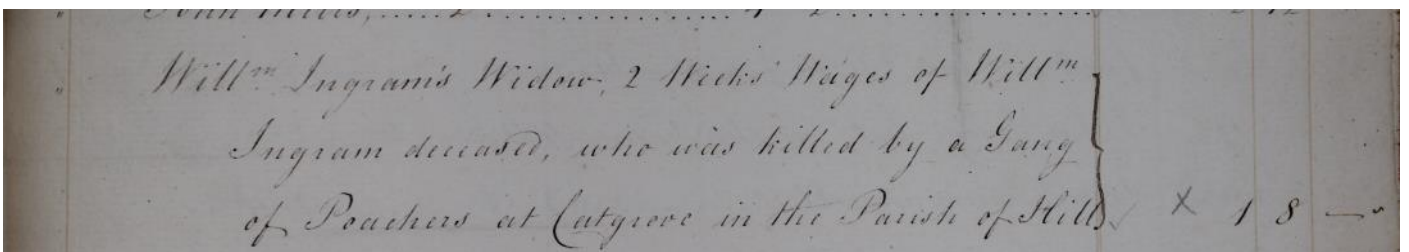 John Mills, 2
" Will^m Ingram's Widow, 2 Weeks' Wages of Will^m
Ingram deceased, who was killed by a Gang
of Poachers at Catgrove in the Parish of Hill } X 1 8 —